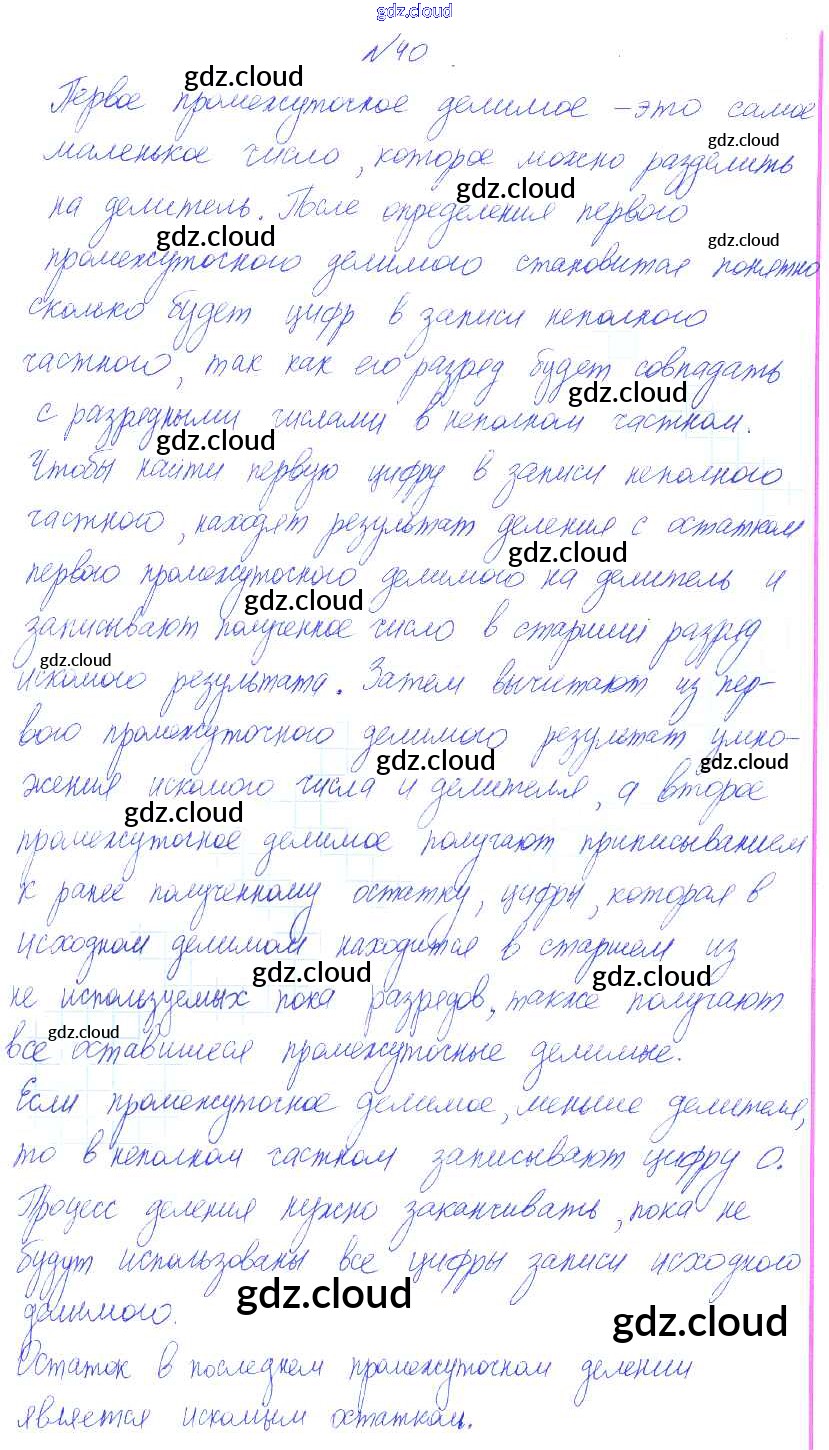 gdz.cloud
№40
gdz.cloud
Первое промежуточное делимое – это самое
gdz.cloud
маленькое число, которое можно разделить
gdz.cloud
на делитель. После определения первого
gdz.cloud gdz.cloud
промежуточного делимого становится понятно
сколько будет цифр в записи неполного
частного, так как его разряд будет совпадать
gdz.cloud
с разрядными числами в неполном частном.
gdz.cloud
Чтобы найти первую цифру в записи неполного
частного, находят результат деления с остатком
gdz.cloud
первого промежуточного делимого на делитель и
gdz.cloud
записывают полученное число в старший разряд
gdz.cloud
искомого результата. Затем вычитают из пер-
вого промежуточного делимого результат умно-
gdz.cloud gdz.cloud
жения искомого числа и делителя, а второе
gdz.cloud
промежуточное делимое получают приписыванием
к ранее полученному остатку, цифры, которая в
исходном делимом находится в старшем из
gdz.cloud gdz.cloud
не используемых пока разрядов, также получают
gdz.cloud
все оставшиеся промежуточные делимые.
Если промежуточное делимое, меньше делителя,
то в неполном частном записывают цифру 0.
Процесс деления нужно заканчивать, пока не
будут использованы все цифры записи исходного
gdz.cloud
делимого.
gdz.cloud
Остаток в последнем промежуточном делении
является искомым остатком.